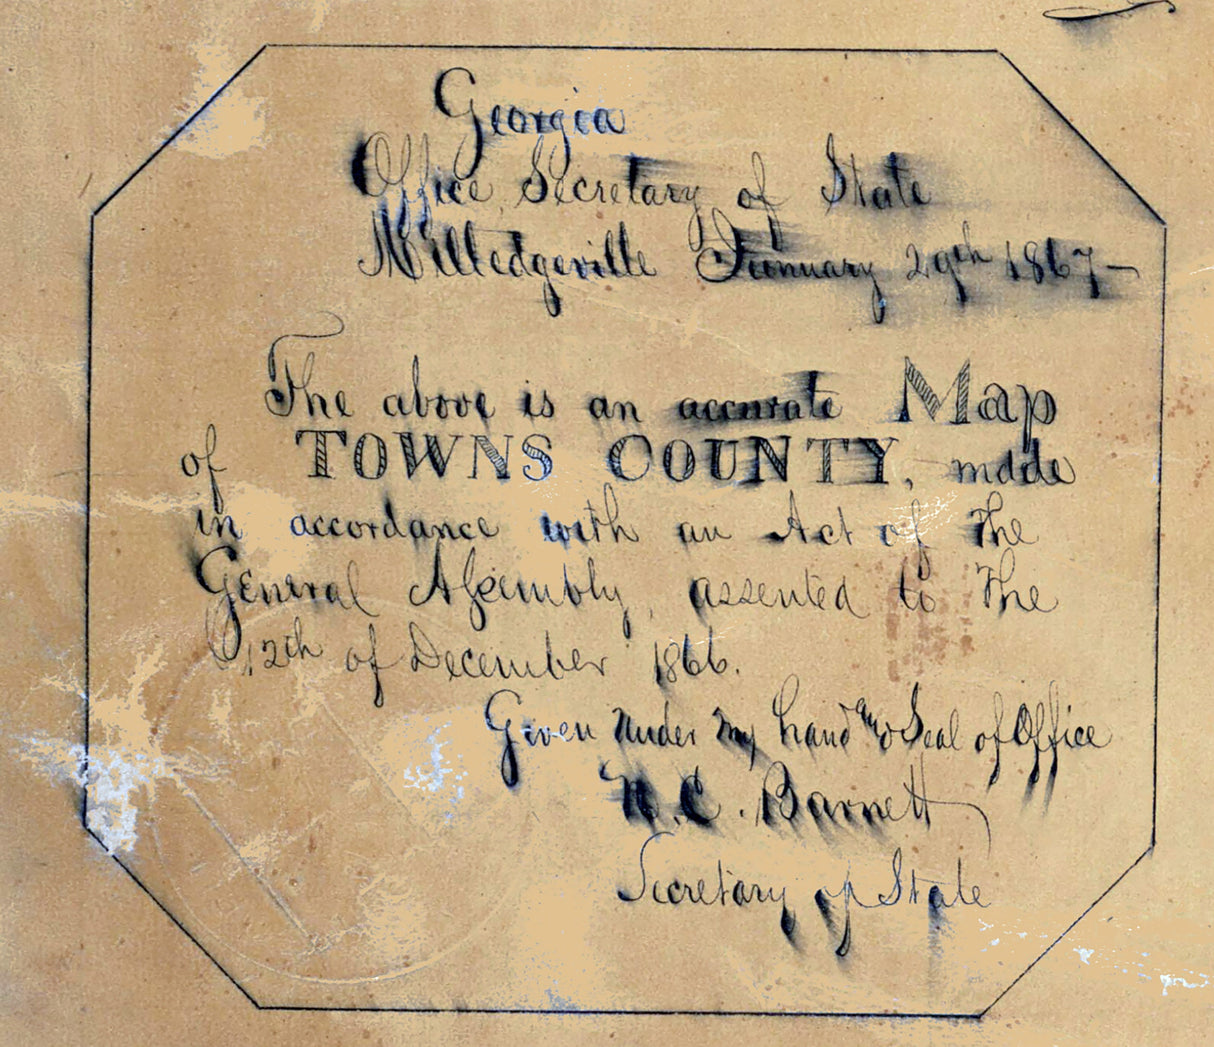 Georgia
Office Secretary of State
Milledgeville January 29th 1867—
The above is an accurate Map
of TOWNS COUNTY, made
in accordance with an Act of The
General Assembly, assented to The
12th of December 1866.
Given under my hand and Seal of Office
N. C. Barnett
Secretary of State